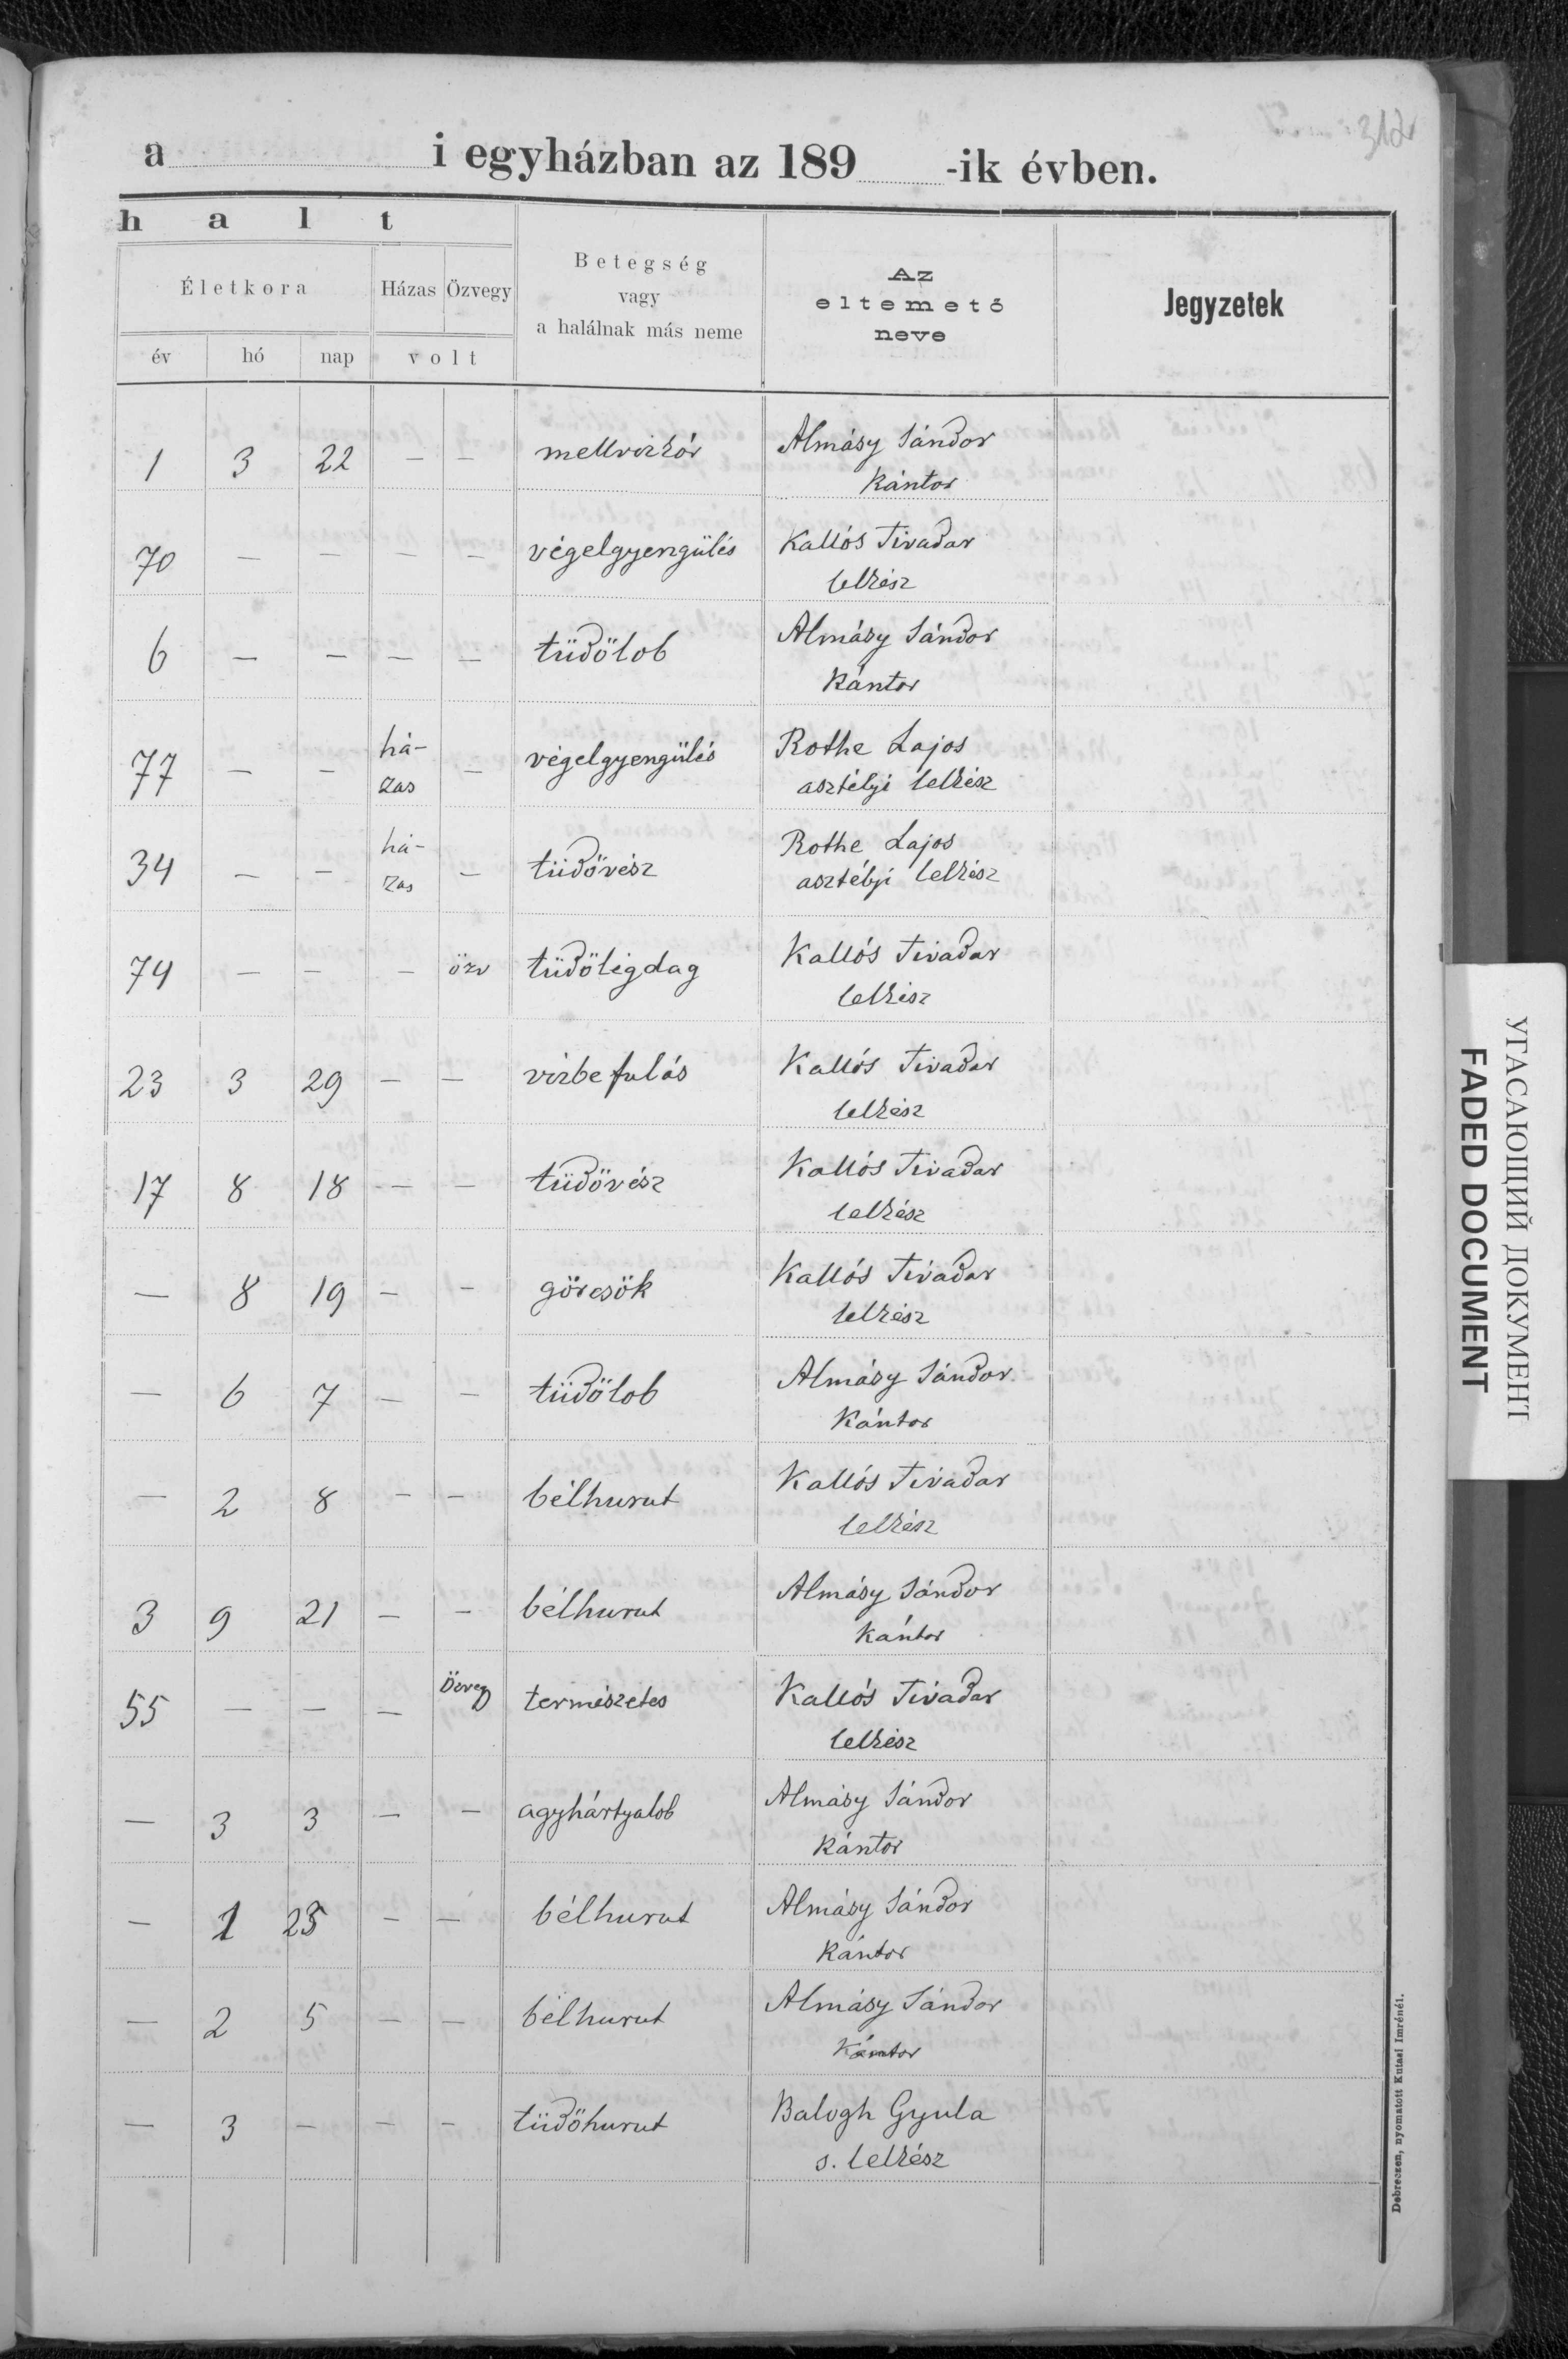 312
a i egyházban az 189 -ik évben.
h a l t
Életkora
Házas Özvegy
Betegség
vagy
a halálnak más neme
Az
eltemető
neve
Jegyzetek
év hó nap volt
1 3 22 — — mellvizkór Almásy Sándor
Kántor
70 — — — — végelgyengülés Kallós Tivadar
lelkész
6 — — — — tüdőlob Almásy Sándor
Kántor
77 — — há- — végelgyengülés Rothe Lajos
zas asztélyi lelkész
34 — — há- — tüdővész Rothe Lajos
zas asztélyi lelkész
74 — — — özv tüdőlégdag Kallós Tivadar
lelkész
23 3 29 — — vizbefulás Kallós Tivadar
lelkész
17 8 18 — — tüdővész Kallós Tivadar
lelkész
— 8 19 — — görcsök Kallós Tivadar
lelkész
— 6 7 — — tüdőlob Almásy Sándor
Kántor
— 2 8 — — bélhurut Kallós Tivadar
lelkész
3 9 21 — — bélhurut Almásy Sándor
Kántor
55 — — — Özvegy természetes Kallós Tivadar
lelkész
— 3 3 — — agyhártyalob Almásy Sándor
Kántor
— 1 — — bélhurut Almásy Sándor
Kántor
— 2 5 — — bélhurut Almásy Sándor
Kántor
— 3 — — — tüdőhurut Balogh Gyula
s. lelkész
Debreczen, nyomatott Kutasi Imrénél.
УГАСАЮЩИЙ ДОКУМЕНТ
FADED DOCUMENT